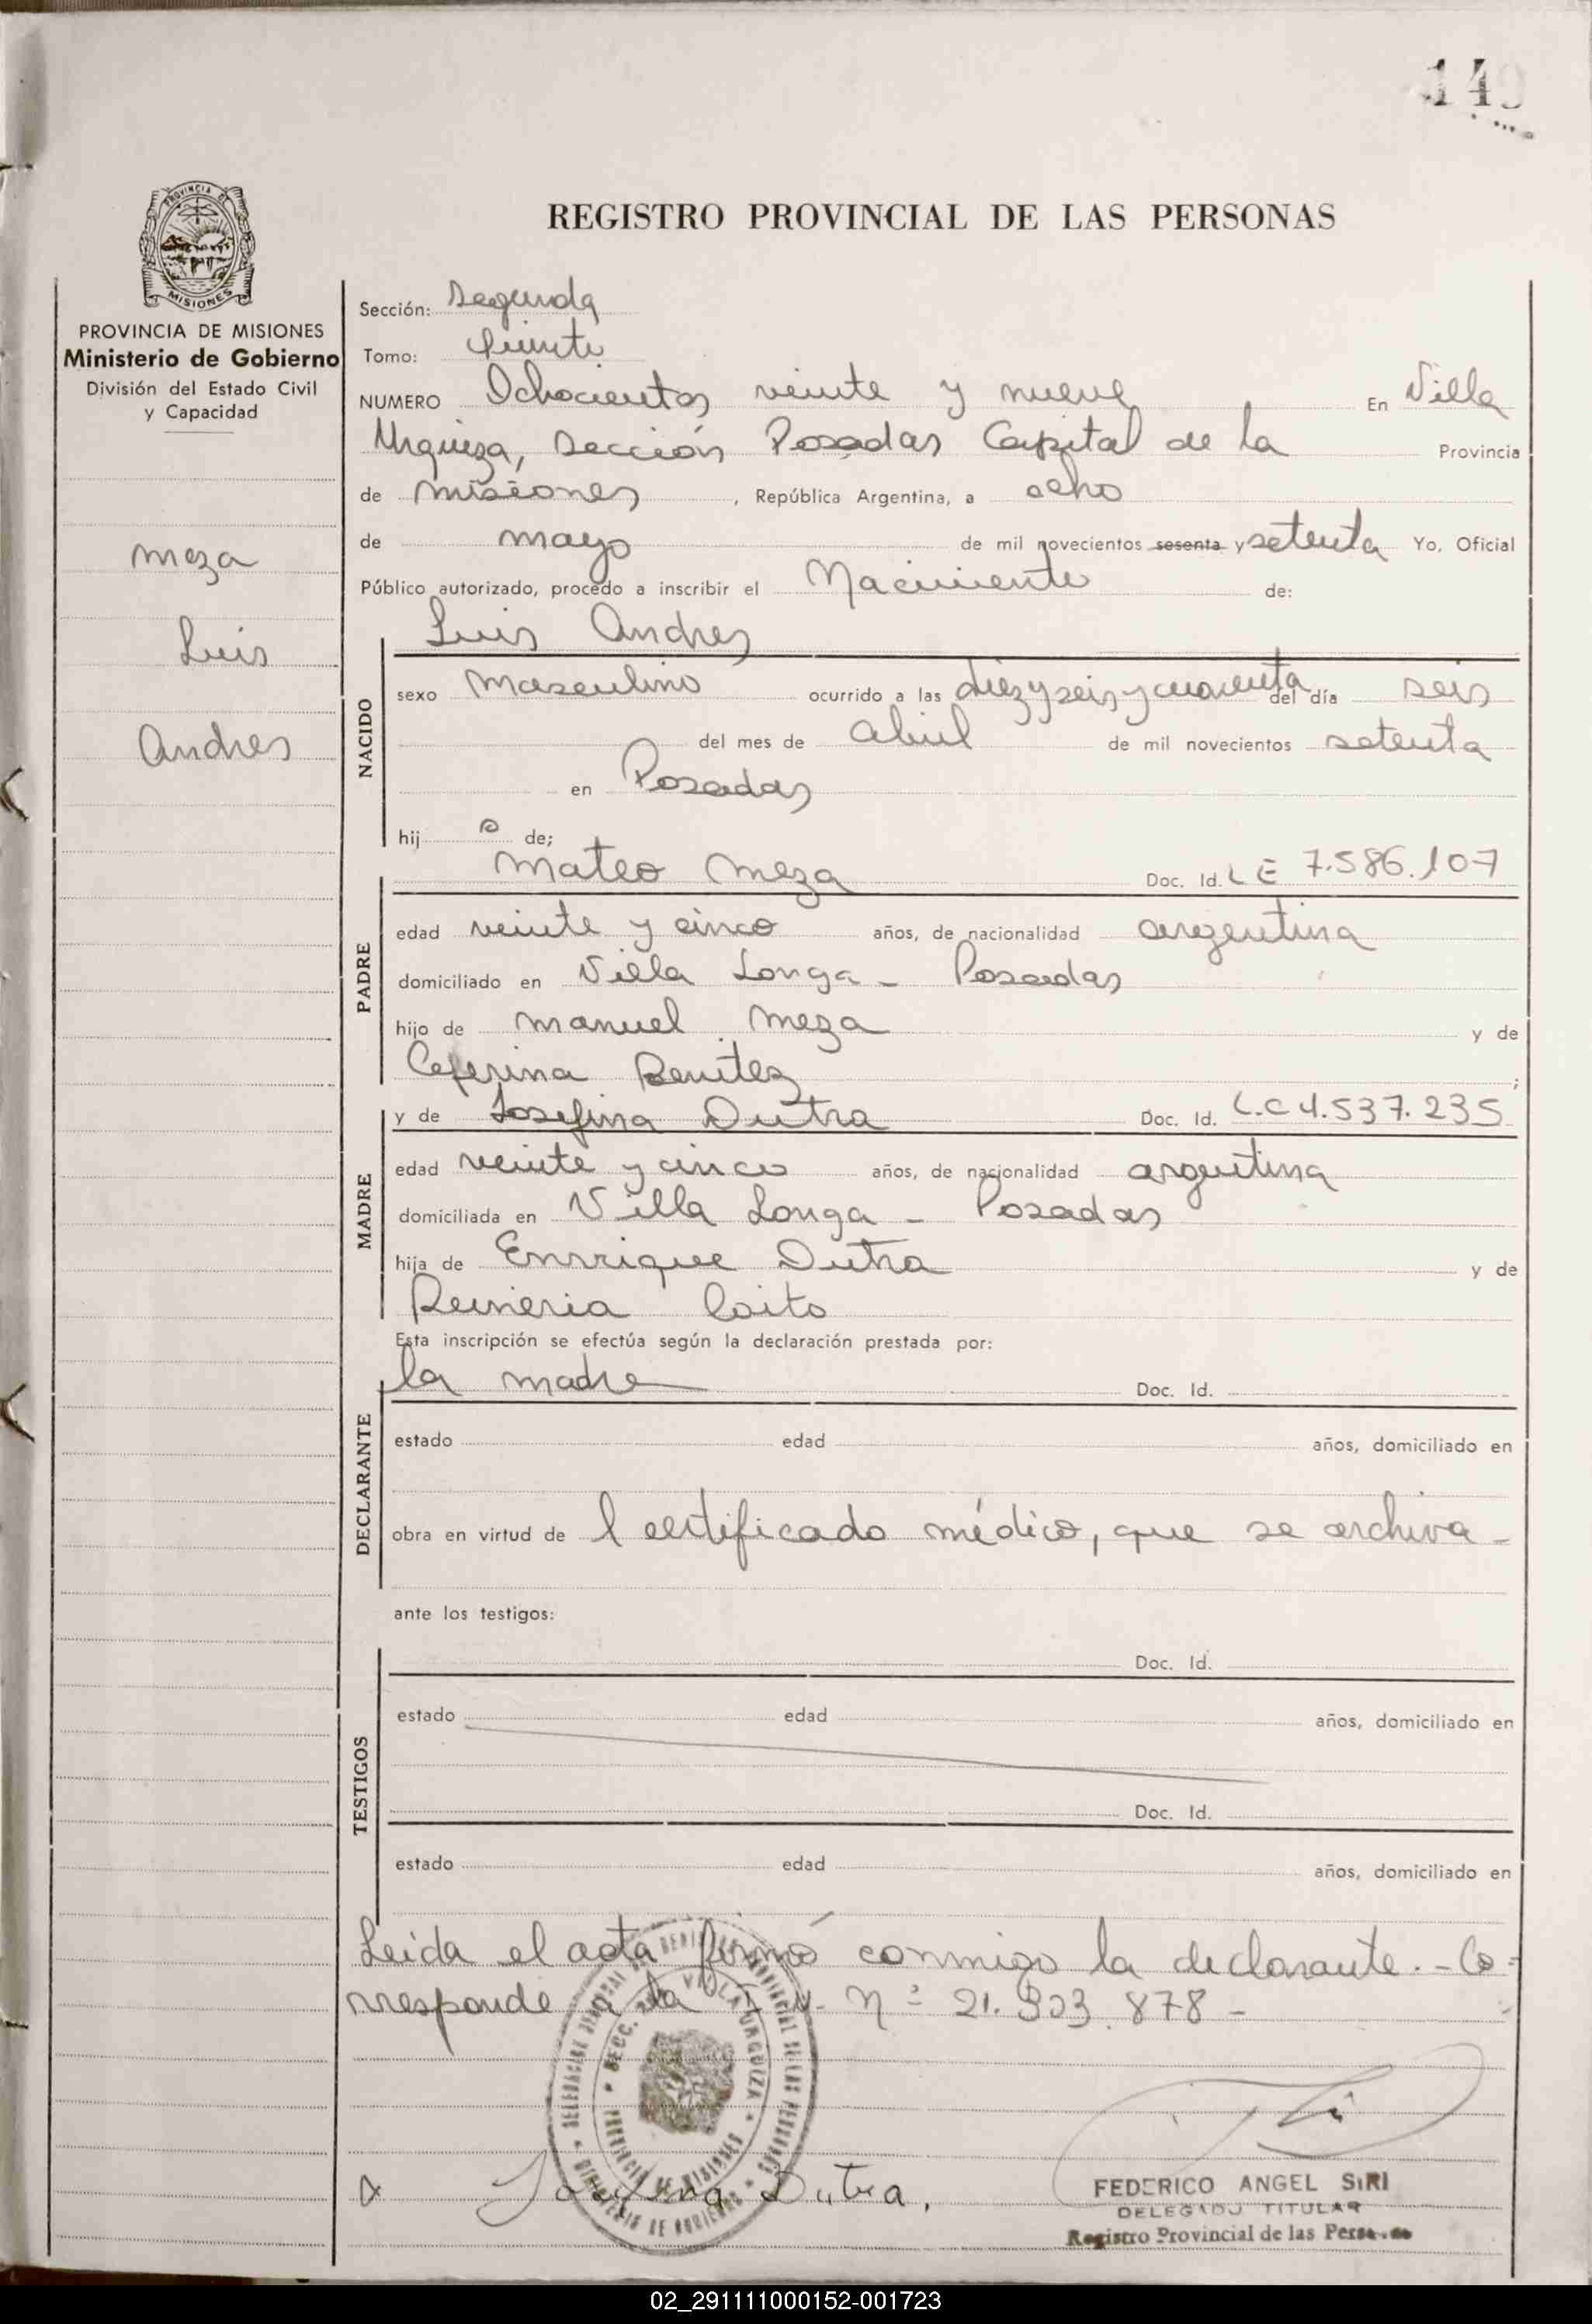 149
REGISTRO PROVINCIAL DE LAS PERSONAS
PROVINCIA DE MISIONES
Ministerio de Gobierno
División del Estado Civil
y Capacidad
Meza
Luis
Andres
Sección: Segunda
Tomo: Quinto
NUMERO Ochocientos veinte y nueve En Villa
Urquiza, Sección Posadas Capital de la Provincia
de Misiones, República Argentina, a ocho
de mayo de mil novecientos sesenta y setenta Yo, Oficial
Público autorizado, procedo a inscribir el Nacimiento de:
Luis Andres
NACIDO
sexo Masculino ocurrido a las diez y seis y cuarenta del día seis
del mes de abril de mil novecientos setenta
en Posadas
hijo de;
Mateo Meza Doc. Id. L E 7.586.107
PADRE
edad veinte y cinco años, de nacionalidad argentina
domiciliado en Villa Longa - Posadas
hijo de Manuel Meza y de
Ceferina Benitez;
y de Josefina Dutra Doc. Id. L.C 4.537.235
MADRE
edad veinte y cinco años, de nacionalidad argentina
domiciliada en Villa Longa - Posadas
hija de Enrrique Dutra y de
Coito
Esta inscripción se efectúa según la declaración prestada por:
la madre Doc. Id.
DECLARANTE
estado edad años, domiciliado en
obra en virtud de l certificado médico, que se archiva-
ante los testigos:
Doc. Id.
TESTIGOS
estado edad años, domiciliado en
Doc. Id.
estado edad años, domiciliado en
Leida el acta firmó conmigo la declarante.- Co-
rresponde a la Nº 21.303.878-
SECC. VILLA URQUIZA
PROVINCIA DE MISIONES
Josefina Dutra.
FEDERICO ANGEL SIRI
DELEGADO TITULAR
Registro Provincial de las Personas
02_291111000152-001723